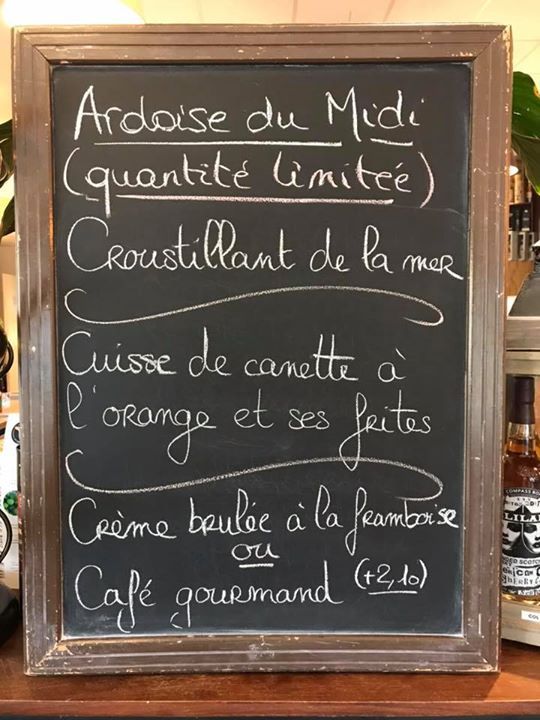 Ardoise du Midi
(quantité limitée)
Croustillant de la mer
Cuisse de canette à
l'orange et ses frites
Crème brulée à la framboise
ou
Café gourmand (+2,10)
COMPASS BOX